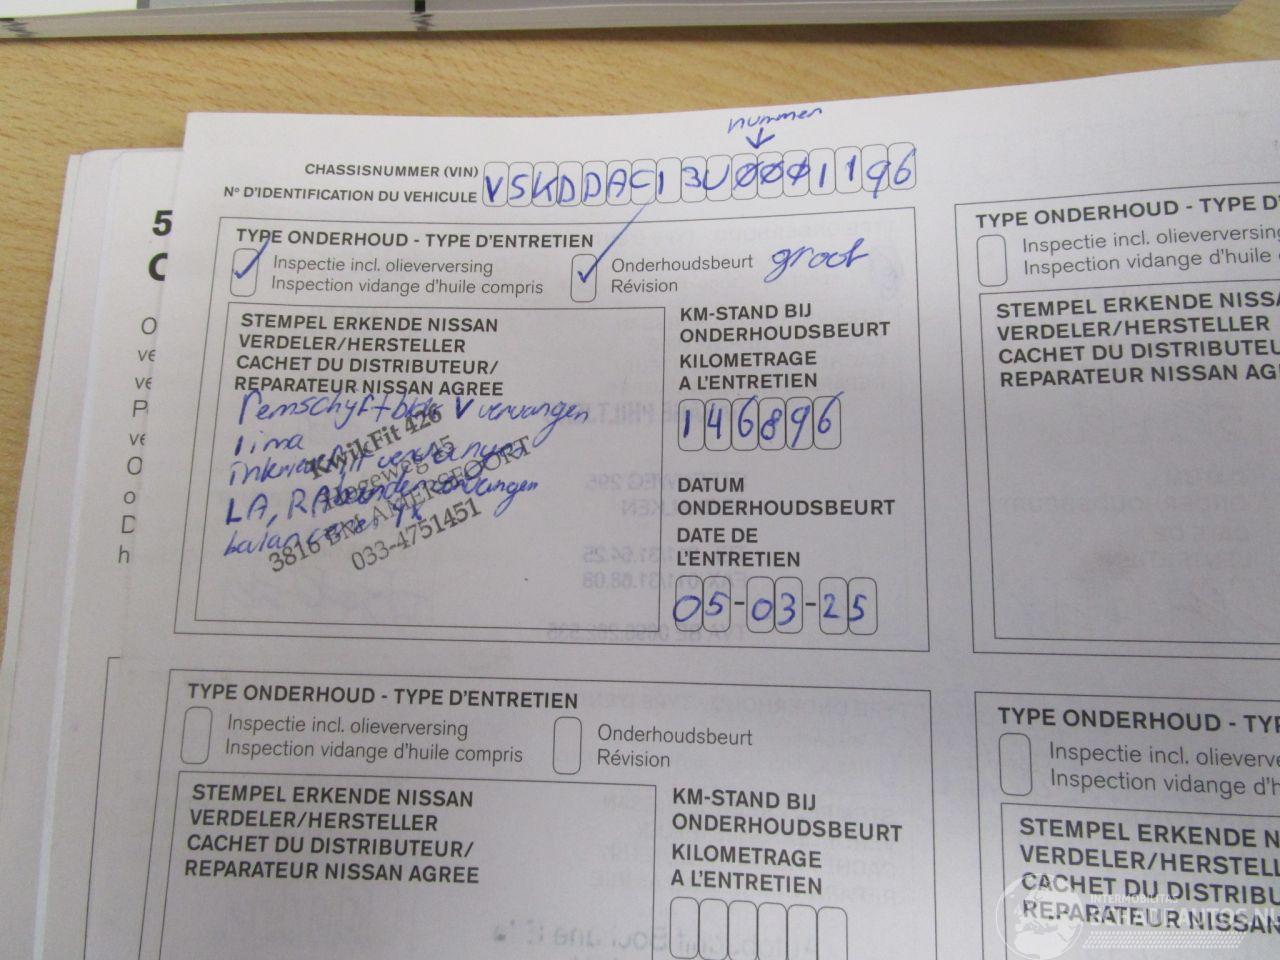 nummer
CHASSISNUMMER (VIN)
N° D'IDENTIFICATION DU VEHICULE
VSKDDAC13U0001196
TYPE ONDERHOUD - TYPE D'ENTRETIEN
Inspectie incl. olieverversing
Inspection vidange d'huile compris
Onderhoudsbeurt groot
Révision
STEMPEL ERKENDE NISSAN
VERDELER/HERSTELLER
CACHET DU DISTRIBUTEUR/
REPARATEUR NISSAN AGREE
remschijf+blok V vervangen
lima
LA, RA banden vervangen
KwikFit 426
Hogeweg 45
3816 BN AMERSFOORT
033-4751451
KM-STAND BIJ
ONDERHOUDSBEURT
KILOMETRAGE
A L'ENTRETIEN
146896
DATUM
ONDERHOUDSBEURT
DATE DE
L'ENTRETIEN
05-03-25
TYPE ONDERHOUD - TYPE D'
Inspectie incl. olieverversing
Inspection vidange d'huile c
STEMPEL ERKENDE NISSA
VERDELER/HERSTELLER
CACHET DU DISTRIBUTEU
REPARATEUR NISSAN AG
TYPE ONDERHOUD - TYPE D'ENTRETIEN
Inspectie incl. olieverversing
Inspection vidange d'huile compris
Onderhoudsbeurt
Révision
STEMPEL ERKENDE NISSAN
VERDELER/HERSTELLER
CACHET DU DISTRIBUTEUR/
REPARATEUR NISSAN AGREE
KM-STAND BIJ
ONDERHOUDSBEURT
KILOMETRAGE
A L'ENTRETIEN
TYPE ONDERHOUD - TY
Inspectie incl. olieverve
Inspection vidange d'h
STEMPEL ERKENDE N
VERDELER/HERSTELL
CACHET DU DISTRIBU
REPARATEUR NISSAN
INTERMOBILITAS